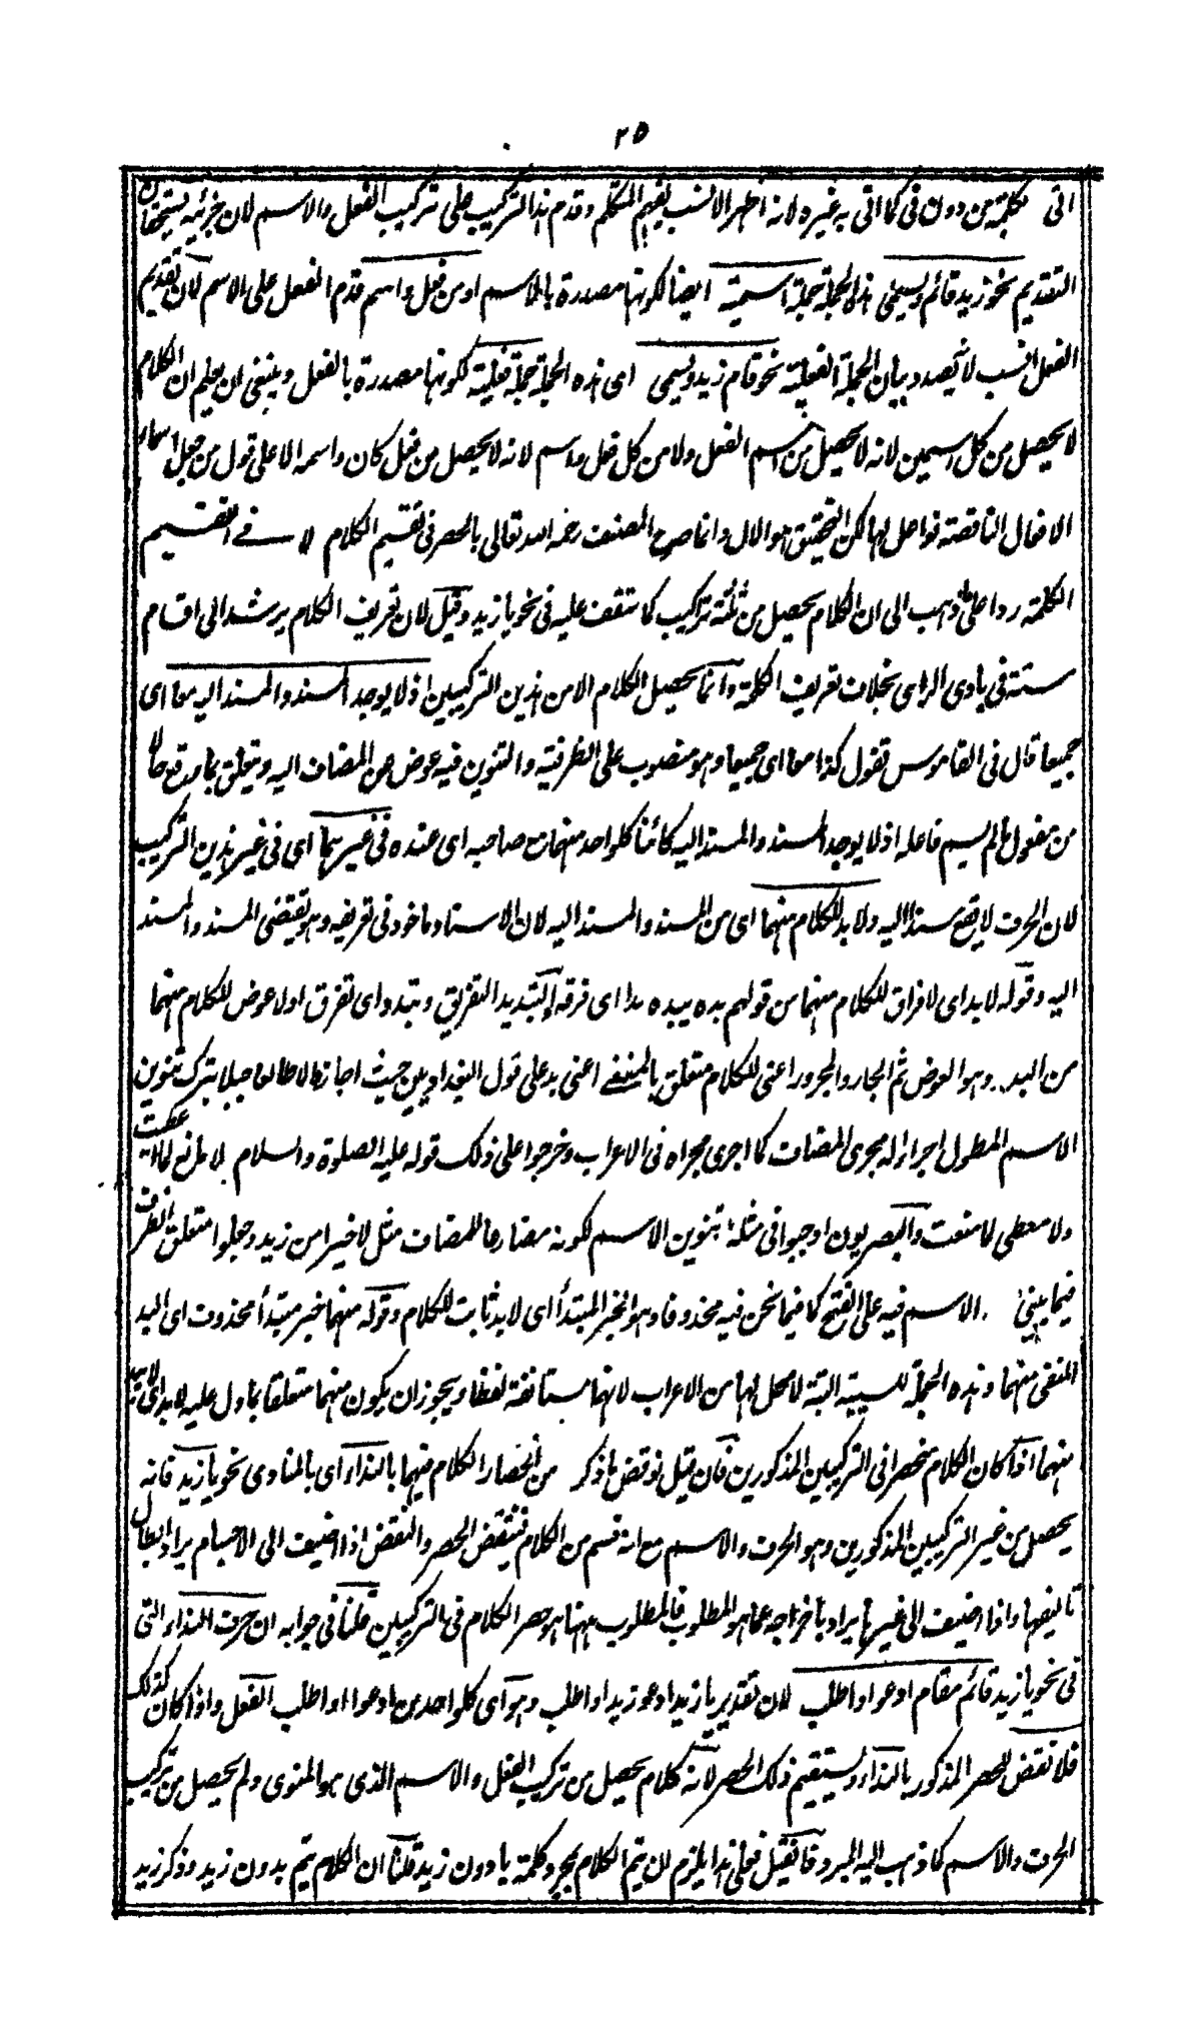 ٢٥
اتى بكلمة من دون فى كما اتى به غيره لانه اظهر الانسب لفهم المتكلم وقدم هذا التركيب على تركيب الفعل والاسم لان جزئيه يستحقان
التقديم نحو زيد قائم ويسمى هذه الجملة جملة اسمية ايضا لكونها مصدرة بالاسم او من فعل واسم قدم الفعل على الاسم لان تقديم
الفعل انسب لانه بصدد بيان الجملة الفعلية نحو قام زيد ويسمى اى هذه الجملة جملة فعلية لكونها مصدرة بالفعل وينبغى ان يعلم ان الكلام
لا يحصل من كل اسمين لانه لا يحصل من اسم الفعل ولا من كل فعل واسم لانه لا يحصل من فعل كان واسمه الا على قول من جعل اسماء
الافعال الناقصة فواعل لها لكن التحقيق هو الاول وانما صرح المصنف رحمه الله تعالى بالحصر فى تقسيم الكلام لا فے تقسيم
الكلمة ردا على من ذهب الى ان الكلام يحصل من ثلثة تركيب كما ستقف عليه فى نحو يا زيد وقيل لان تعريف الكلام يرشد الى اقسام
ستة فى بادى الراى بخلاف تعريف الكلمة وانما يحصل الكلام الا من هذين التركيبين اذ لا يوجد المسند والمسند اليه معا اى
جميعا قال فى القاموس تقول كذا معا اى جميعا وهو منصوب على الظرفية والتنوين فيه عوض عن المضاف اليه ويتعلق بما وقع حالا
من مفعول ما لم يسم فاعله اذ لا يوجد المسند والمسند اليه كائنا كلواحد منهما مع صاحبه اى عنده فى غيرهما اى فى غير هذين التركيبين
لان الحرف لا يقع مسندا اليه ولا بد للكلام منهما اى من المسند والمسند اليه لان الاسناد ماخوذ فى تعريفه وهو يقتضى المسند والمسند
اليه وقوله لا بد اى لا فراق للكلام منهما من قولهم بده يبده بدا اى فرقه والتبديد التفريق وتبدد اى تفرق اولا عوض للكلام منهما
من البد وهو العوض ثم الجار والمجرور اعنى للكلام متعلق بالمنفے اعنى بد على قول البغداديين حيث اجازوا لا طالعا جبلا بترك تنوين
الاسم المطول اجراء له مجرى المضاف كما اجرى مجراه فى الاعراب وخرجوا على ذلك قوله عليه الصلوة والسلام لا مانع لما اعطيت
ولا معطى لما منعت والبصريون اوجبوا فى مثله تنوين الاسم لكونه مضارعا للمضاف مثل لا خيرا من زيد وجعلوا متعلق الظرف
فيما يبنى الاسم فيه على الفتح كما فيما نحن فيه محذوفا وهو الخبر المبتدأ اى لا بد ثابت للكلام وقوله منهما خبر مبتدأ محذوف اى البد
المنفى منهما وهذه الجملة للسببية البتة لا محل لها من الاعراب لانها مستانفة لفظا ويجوز ان يكون منهما متعلقا بما دل عليه لا بد اى لا بد
منهما اذا كان الكلام منحصرا فى التركيبين المذكورين فان قيل نوقض ما ذكر من انحصار الكلام منهما بالنداء اى بالمنادى نحو يا زيد فانه
يحصل من غير التركيبين المذكورين وهو الحرف والاسم مع انه قسم من الكلام فينتقض الحصر والنقض اذا اضيف الى الاجسام يراد ابطال
تاليفها واذا اضيف الى غيرها يراد باخراجه عما هو المطلوب فالمطلوب ههنا هو حصر الكلام فى التركيبين قلنا فى جوابه ان حرف النداء التى
فى نحو يا زيد قائم مقام ادعو او اطلب لان تقدير يا زيد ادعو زيدا واطلب وهو اى كلواحد من ادعو او اطلب الفعل واذا كان كذلك
فلا نقض للحصر المذكور بالنداء ويستقيم ذلك الحصر لانه كلام يحصل من تركيب الفعل والاسم الذى هو المنوى ولم يحصل من تركيب
الحرف والاسم كما ذهب اليه المبرد فان قيل فعلى هذا يلزم ان يتم الكلام بمجرد كلمة يا دون زيد قلنا ان الكلام يتم بدون زيد وذكر زيد